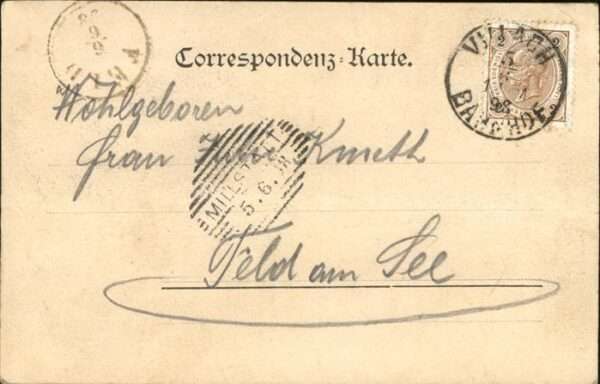 Correspondenz-Karte.
VILLACH
BAHNHOF
Wohlgeboren
Frau Kmeth
MILLSTATT
5.6.98
Feld am See